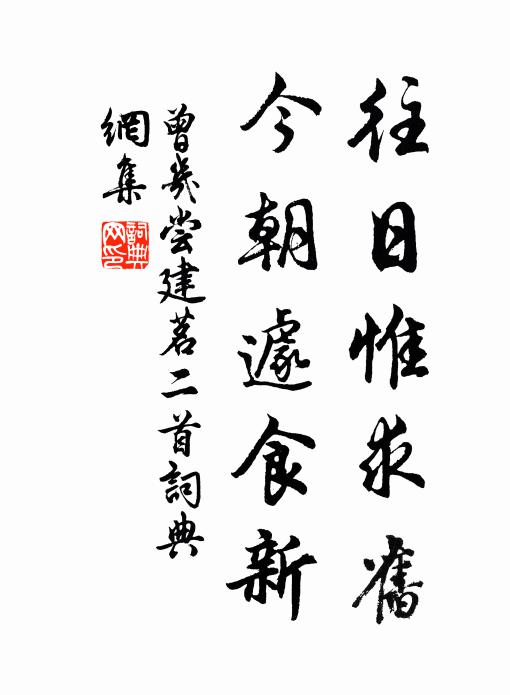 往日惟求舊
今朝遽食新
曾幾嘗建茗二首詞典
網集
詞典
网印